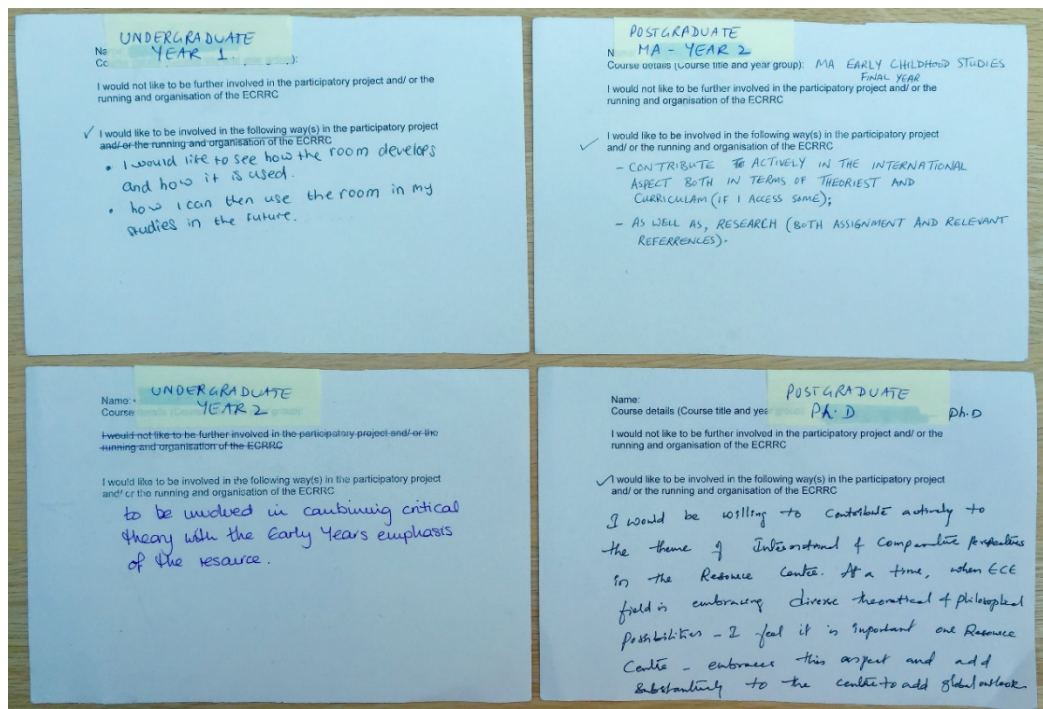 UNDERGRADUATE
YEAR 1
I would not like to be further involved in the participatory project and/ or the
running and organisation of the ECRRC
✓ I would like to be involved in the following way(s) in the participatory project
and/ or the running and organisation of the ECRRC
• I would like to see how the room develops
and how it is used.
• how I can then use the room in my
studies in the future.
POSTGRADUATE
MA - YEAR 2
Course details (Course title and year group): MA EARLY CHILDHOOD STUDIES
FINAL YEAR
I would not like to be further involved in the participatory project and/ or the
running and organisation of the ECRRC
✓ I would like to be involved in the following way(s) in the participatory project
and/ or the running and organisation of the ECRRC
- CONTRIBUTE TO ACTIVELY IN THE INTERNATIONAL
ASPECT BOTH IN TERMS OF THEORIEST AND
CURRICULAM (IF I ACCESS SOME);
- AS WELL AS, RESEARCH (BOTH ASSIGNMENT AND RELEVANT
REFERRENCES).
UNDERGRADUATE
Name:
YEAR 2
Course
I would not like to be further involved in the participatory project and/ or the
running and organisation of the ECRRC
I would like to be involved in the following way(s) in the participatory project
and/ or the running and organisation of the ECRRC
to be involved in combining critical
theory with the Early Years emphasis
of the resource.
POSTGRADUATE
Name:
Course details (Course title and year Ph.D Ph.D
I would not like to be further involved in the participatory project and/ or the
running and organisation of the ECRRC
✓ I would like to be involved in the following way(s) in the participatory project
and/ or the running and organisation of the ECRRC
I would be willing to contribute actively to
the theme of International & Comparative perspectives
in the Resource Centre. At a time, when ECE
field is embracing diverse theoretical & philosophical
possibilities - I feel it is important one Resource
Centre - embraces this aspect and add
substantively to the centre to add global outlook